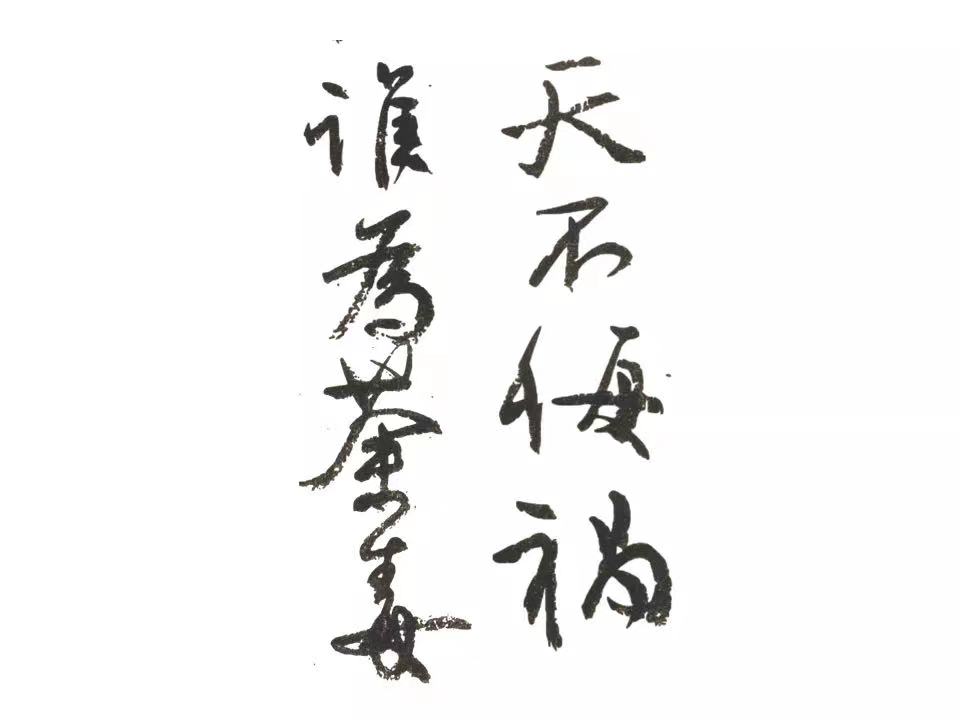 天不悔禍
誰為荼毒